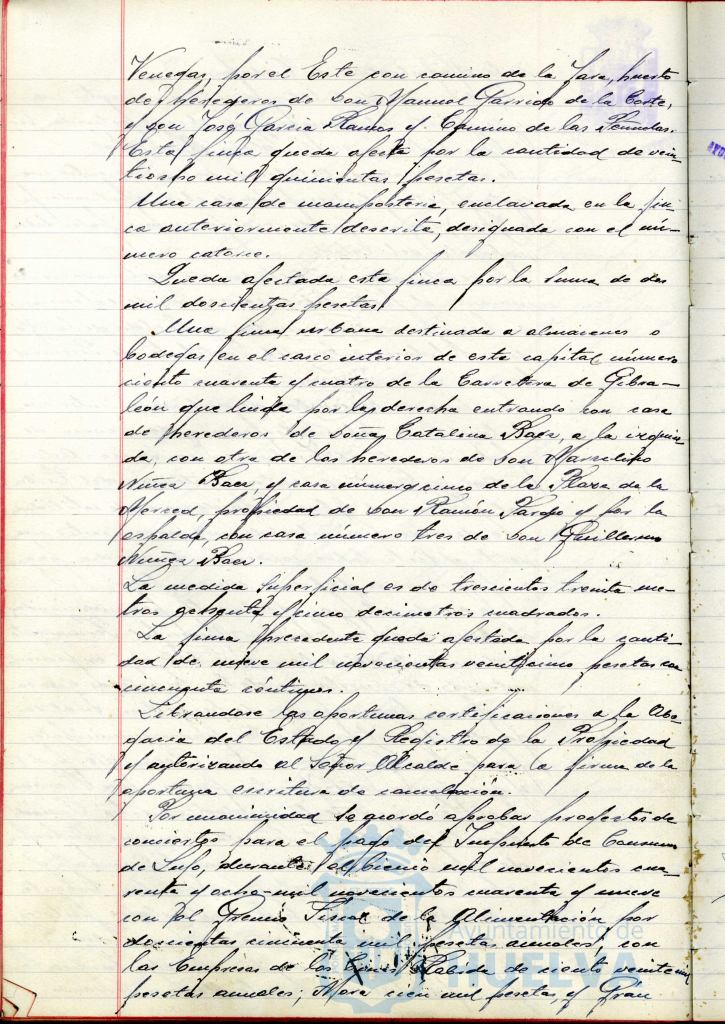 Venegas, por el Este con camino de la Jara, huerto
de herederos de Don Manuel Garrido de la Corte,
y don José García Ramos y Camino de las
Esta finca queda afecta por la cantidad de vein-
tiocho mil quinientas pesetas.
Una casa de mampostería, enclavada en la fin-
ca anteriormente descrita, designada con el nú-
mero catorce.
Queda afectada esta finca por la suma de dos
mil doscientas pesetas.
Una finca urbana destinada a almacenes o
bodegas en el casco interior de esta capital número
ciento cuarenta y cuatro de la Carretera de Gibra-
león que linda por la derecha entrando con casa
de herederos de Doña Catalina Baez, a la izquier-
da, con otra de los herederos de Don Marcelino
Núñez Baez, y casa número cinco de la Plaza de la
Merced, propiedad de Don Ramón Vargas y por la
espalda, con casa número tres de Don Guillermo
Núñez Baez.
La medida superficial es de trescientos treinta me-
tros ochenta y cinco decimetros cuadrados.
La finca precedente queda afectada por la canti-
dad de nueve mil novecientas veinticinco pesetas con
cincuenta céntimos.
Librandose las oportunas certificaciones a la Abo-
gacia del Estado y Registro de la Propiedad
y autorizando al Señor Alcalde para la firma de la
oportuna escritura de cancelación.
Por unanimidad se acordó aprobar proyectos de
conciertos para el pago del Impuesto de Consumo
de Lujo, durante el bienio mil novecientos cua-
renta y ocho-mil novecientos cuarenta y nueve
con el Gremio Fiscal de la Alimentación por
doscientas cincuenta mil pesetas anuales, con
las Empresas de los Cines Rabida de ciento veinte mil
pesetas anuales; Mora cien mil pesetas, y Gran
Ayuntamiento de
HUELVA